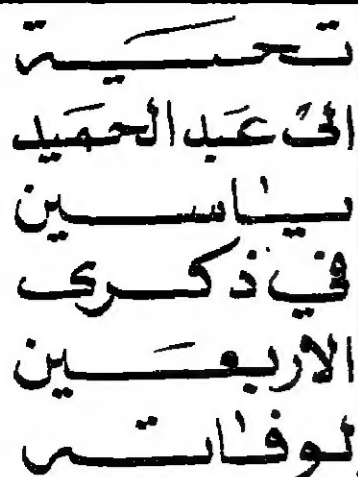 تحية
الى عبد الحميد
ياسين
في ذكرى
الاربعين
لوفاته